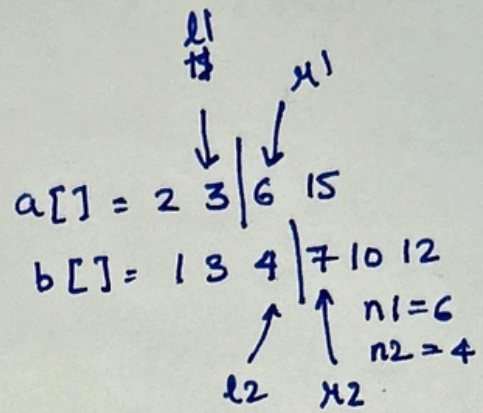 l1
r1
a[] = 2 3 | 6 15
b[] = 1 3 4 | 7 10 12
n1 = 6
n2 = 4
l2 r2